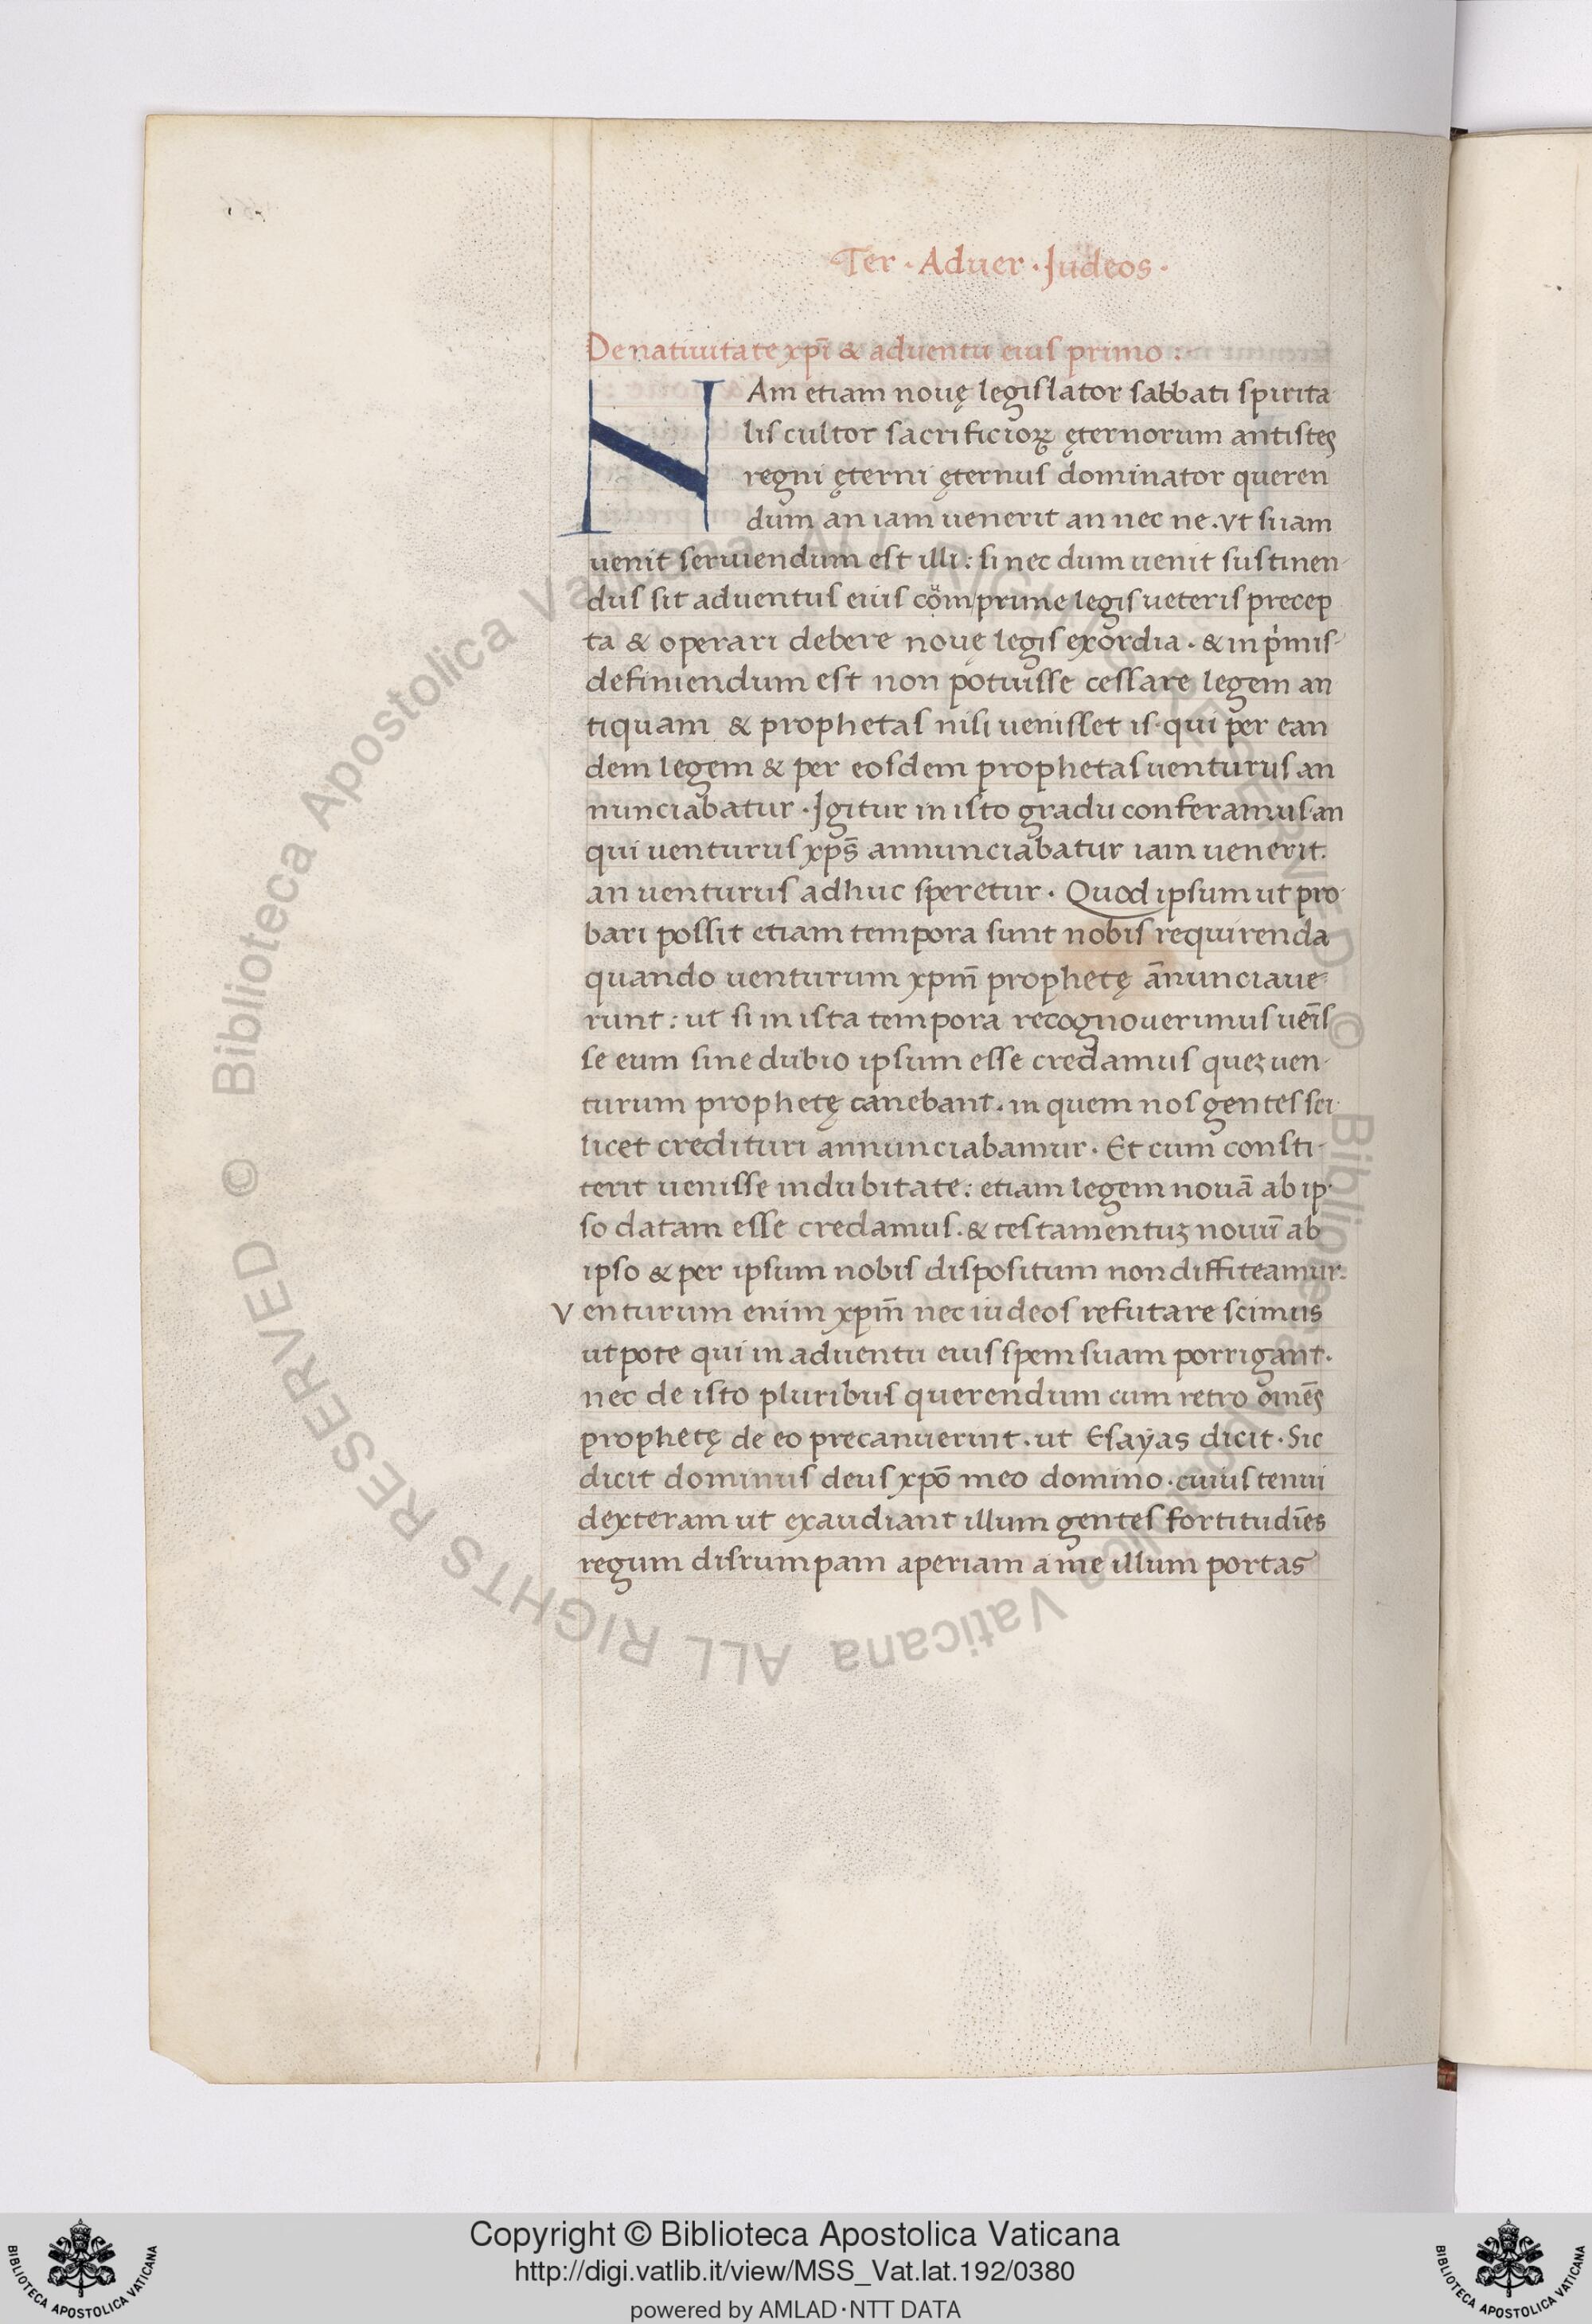 Ter · Aduer · Judeos ·
De natiuitate xp̄i & aduentu eius primo :
NAm etiam nouę legislator sabbati spirita
lis cultor sacrificioꝝ ęternorum antistes
regni ęterni ęternus dominator queren
dum an iam uenerit an nec ne . vt si iam
uenit seruiendum est illi : si nec dum uenit sustinen
dus sit aduentus eius comprime legis ueteris precep
ta & operari debere nouę legis exordia . & in pͥmis
definiendum est non potuisse cessare legem an
tiquam & prophetas nisi uenisset is · qui per ean
dem legem & per eosdem prophetas uenturus an
nunciabatur . Igitur in isto gradu conferamus · an
qui uenturus xp̄s annunciabatur iam uenerit .
an uenturus adhuc speretur . Quod ipsum ut pro
bari possit etiam tempora sunt nobis requirenda
quando uenturum xpm̄ prophetę ānunciaue
runt : ut si in ista tempora recognouerimus uēis
se eum sine dubio ipsum esse credamus queꝫ uen
turum prophetę canebant . in quem nos gentes sci
licet credituri annunciabamur . Et cum consti
terit uenisse indubitate : etiam legem nouā ab ip
so datam esse credamus . & testamentuꝫ nouū ab
ipso & per ipsum nobis dispositum non diffiteamur .
Venturum enim xpm̄ nec iudeos refutare scimus
utpote qui in aduentu eius spem suam porrigant .
nec de isto pluribus querendum cum retro omēs
prophetę de eo precanuerint . ut Esayas dicit . Sic
dicit dominus deus xpō meo domino · cuius tenui
dexteram ut exaudiant illum gentes fortitudīes
regum disrumpam aperiam a me illum portas
Biblioteca Apostolica Vaticana ALL RIGHTS RESERVED ©
Biblioteca Apostolica Vaticana ALL RIGHTS RESERVED ©
BIBLIOTECA APOSTOLICA VATICANA
Copyright © Biblioteca Apostolica Vaticana
http://digi.vatlib.it/view/MSS_Vat.lat.192/0380
powered by AMLAD·NTT DATA
BIBLIOTECA APOSTOLICA VATICANA